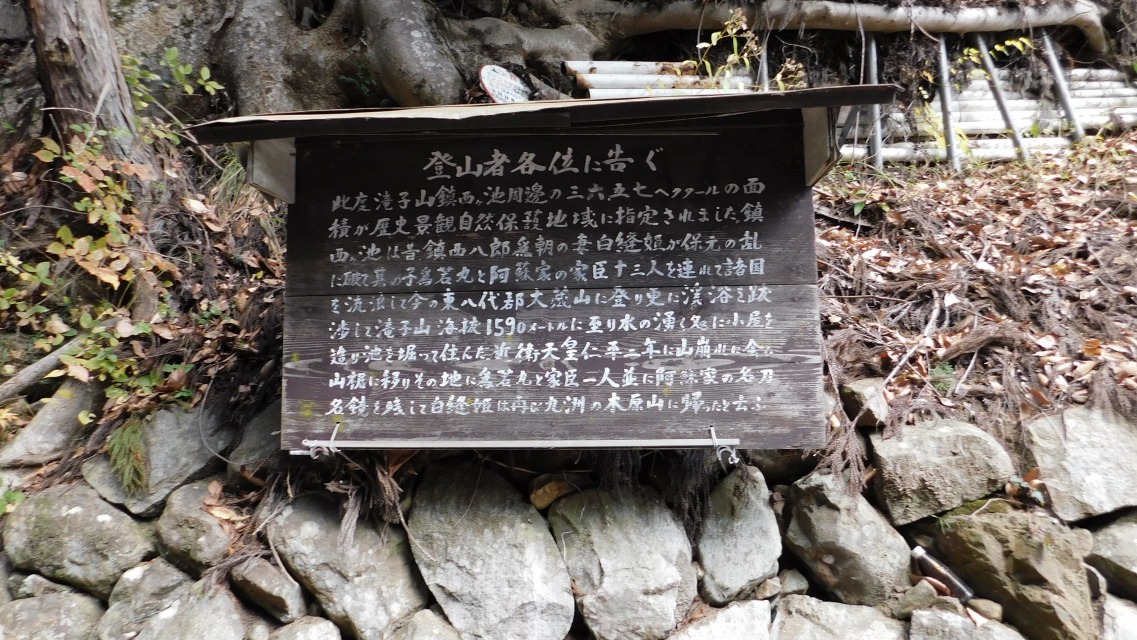 登山者各位に告ぐ
此度滝子山鎮西ヶ池周邊の三六五七ヘクタールの面
積が歴史景観自然保護地域に指定されました鎮
西ヶ池は昔鎮西八郎為朝の妻白縫姫が保元の乱
に破て其の子為若丸と阿蘇家の家臣十三人を連れて諸国
を流浪して今の東八代郡大蔵山に登り更に渓谷を跋
渉して滝子山海抜1590メートルに至り水の湧く処に小屋を
造り池を堀って住んだ近衛天皇仁平二年に山崩れに会い
山裾に移りその地に為若丸と家臣一人並に阿蘇家の名刀
名鏡を残して白縫姫は再び九洲の木原山に帰ったと云ふ